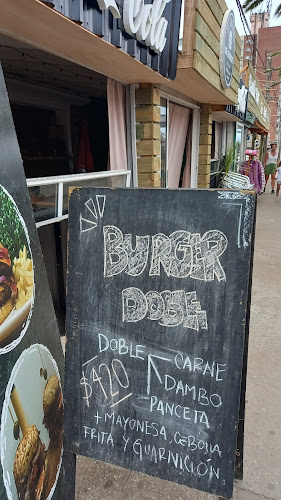 Cola
BURGER
DOBLE
DOBLE CARNE
DAMBO
PANCETA
$420
+ MAYONESA, CEBOLLA
FRITA Y GUARNICIÓN